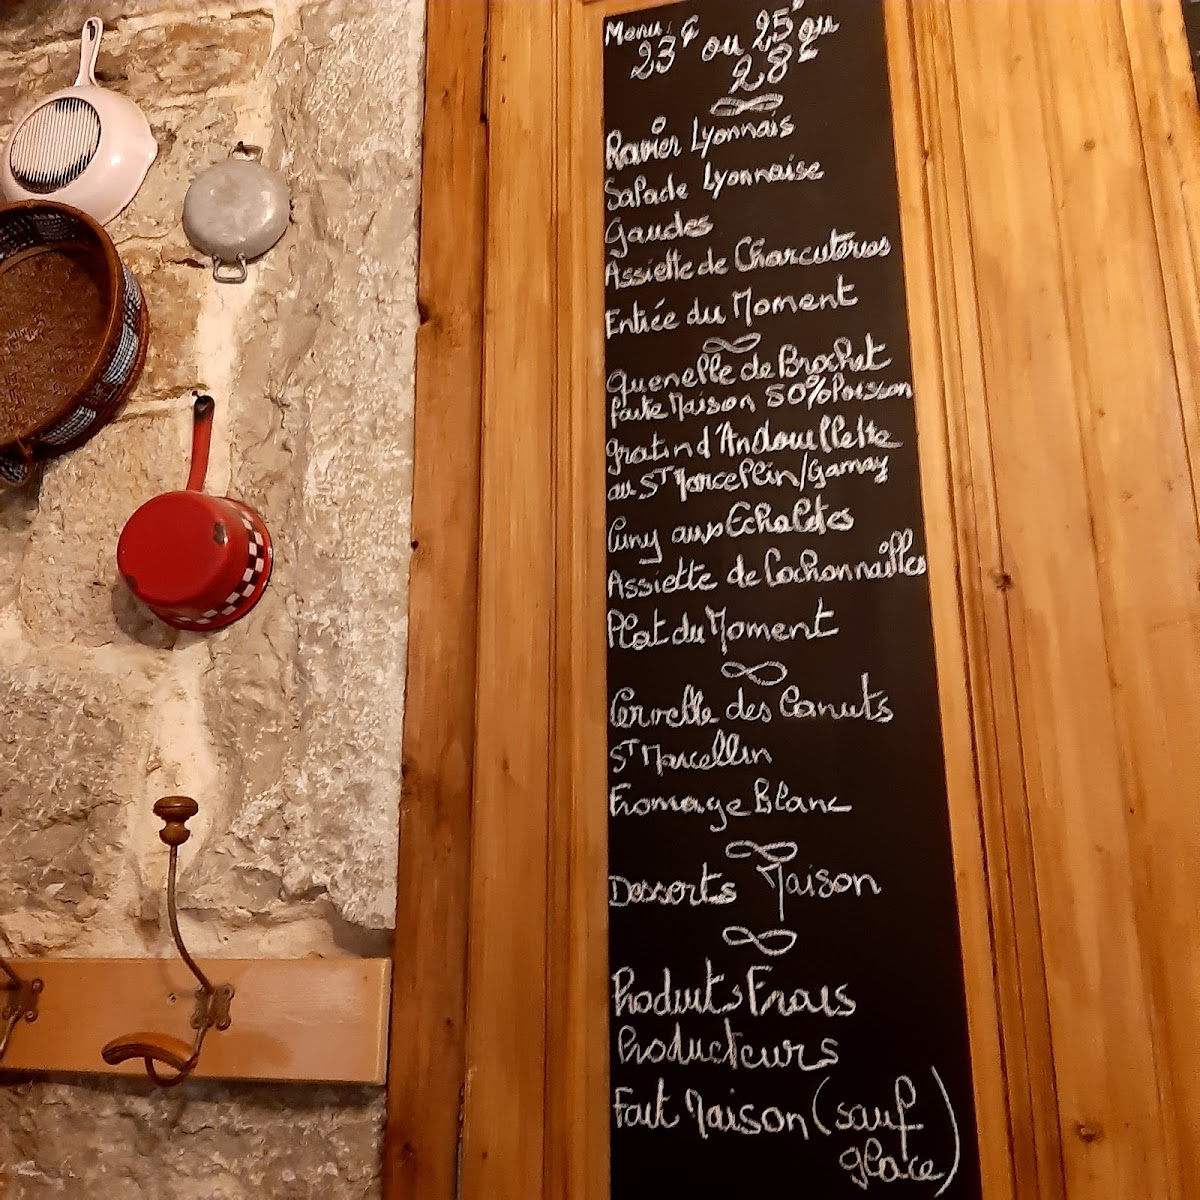 Menu
23€ ou 25€ ou
28€
Ravier Lyonnais
Salade Lyonnaise
Gaudes
Assiette de Charcuteries
Entrée du Moment
Quenelle de Brochet
faite Maison 50% Poisson
Gratin d'Andouillette
au ST Marcellin/Gamay
aux Echalotes
Assiette de Cochonnailles
Plat du Moment
Cervelle des Canuts
ST Marcellin
Fromage Blanc
Desserts Maison
Produits Frais
Producteurs
Fait Maison (sauf
glace)